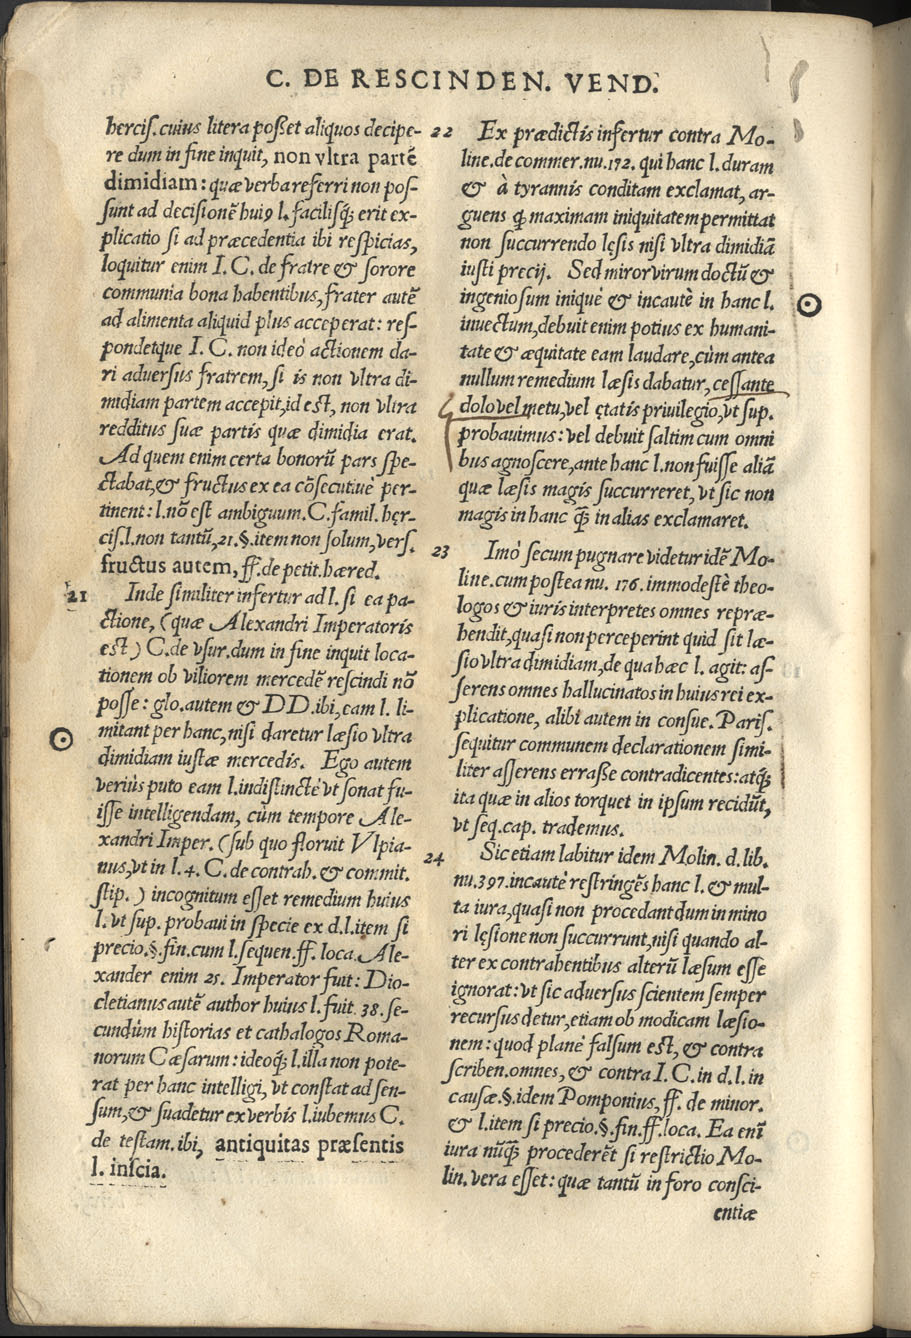 C. DE RESCINDEN. VEND.
hercis. cuius litera posset aliquos decipe-
re dum in fine inquit, non vltra partē
dimidiam: quæ verba referri non pos-
sunt ad decisionē huiꝰ l. facilisq́; erit ex-
plicatio si ad præcedentia ibi respicias,
loquitur enim I. C. de fratre & sorore
communia bona habentibus, frater autē
ad alimenta aliquid plus acceperat: res-
pondetque I. C. non ideò actionem da-
ri aduersus fratrem, si is non vltra di-
midiam partem accepit, id est, non vltra
redditus suæ partis quæ dimidia erat.
Ad quem enim certa bonorū pars spe-
ctabat, & fructus ex ea cōsecutiuè per-
tinent: l. nō est ambiguum. C. famil. hęr-
cis. l. non tantū, 21. §. item non solum, vers.
fructus autem, ff. de petit. hæred.
21 Inde similiter infertur ad l. si ea pa-
ctione, (quæ Alexandri Imperatoris
est) C. de vsur. dum in fine inquit loca-
tionem ob viliorem mercedē rescindi nō
posse: glo. autem & DD. ibi, eam l. li-
mitant per hanc, nisi daretur læsio vltra
dimidiam iustæ mercedis. Ego autem
veriùs puto eam l. indistinctè vt sonat fu-
isse intelligendam, cùm tempore Ale-
xandri Imper. (sub quo floruit Vlpia-
nus, vt in l. 4. C. de contrah. & commit.
stip.) incognitum esset remedium huius
l. vt sup. probaui in specie ex d. l. item si
precio. §. fin. cum l. sequen. ff. loca. Ale-
xander enim 25. Imperator fuit: Dio-
cletianus autē author huius l. fuit 38. se-
cundùm historias et cathalogos Roma-
norum Cæsarum: ideoq́; l. illa non pote-
rat per hanc intelligi, vt constat ad sen-
sum, & suadetur ex verbis l. iubemus C.
de testam. ibi, antiquitas præsentis
l. inscia.
22 Ex prædictis infertur contra Mo-
line. de commer. nu. 172. qui hanc l. duram
& à tyrannis conditam exclamat, ar-
guens q̃ maximam iniquitatem permittat
non succurrendo lęsis nisi vltra dimidiā
iusti precij. Sed miror virum doctū &
ingeniosum iniquè & incautè in hanc l.
inuectum, debuit enim potius ex humani-
tate & æquitate eam laudare, cùm antea
nullum remedium læsis dabatur, cessante
dolo vel metu, vel ętatis priuilegio, vt sup.
probauimus: vel debuit saltim cum omni
bus agnoscere, ante hanc l. non fuisse aliā
quæ læsis magis succurreret, vt sic non
magis in hanc q̃; in alias exclamaret.
23 Imò secum pugnare videtur idē Mo-
line. cum postea nu. 176. immodestè theo-
logos & iuris interpretes omnes repræ-
hendit, quasi non perceperint quid sit læ-
sio vltra dimidiam, de qua hæc l. agit: as-
serens omnes hallucinatos in huius rei ex-
plicatione, alibi autem in consue. Paris.
sequitur communem declarationem simi-
liter asserens errasse contradicentes: atq́;
ita quæ in alios torquet in ipsum recidūt,
vt seq. cap. trademus.
24 Sic etiam labitur idem Molin. d. lib.
nu. 397. incautè restringēs hanc l. & mul-
ta iura, quasi non procedant dum in mino
ri lęsione non succurrunt, nisi quando al-
ter ex contrahentibus alterū læsum esse
ignorat: vt sic aduersus scientem semper
recursus detur, etiam ob modicam læsio-
nem: quod planè falsum est, & contra
scriben. omnes, & contra I. C. in d. l. in
causæ. §. idem Pomponius, ff. de minor.
& l. item si precio. §. fin. ff. loca. Ea enī
iura nūq̃; procederēt si restrictio Mo-
lin. vera esset: quæ tantū in foro consci-
entiæ